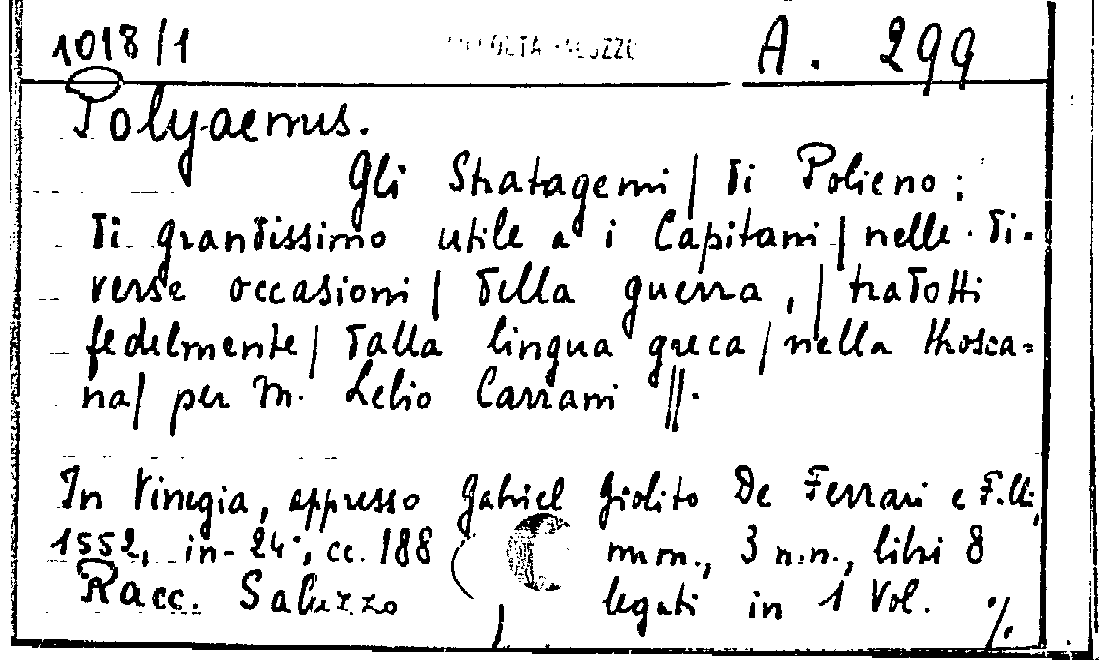 1018/1 RACCOLTA SALUZZO A. 299
Polyaenus.
Gli Stratagemi / di Polieno;
di grandissimo utile a i Capitani / nelle di-
verse occasioni / della guerra, / tradotti
fedelmente / dalla lingua greca / nella thosca=
na / per M. Lelio Carrani //.
In Vinegia, appresso Gabriel Giolito De Ferrari e F.lli,
1552, in-24°, cc. 188 num., 3 n.n., libri 8
Racc. Saluzzo legati in 1 Vol. %